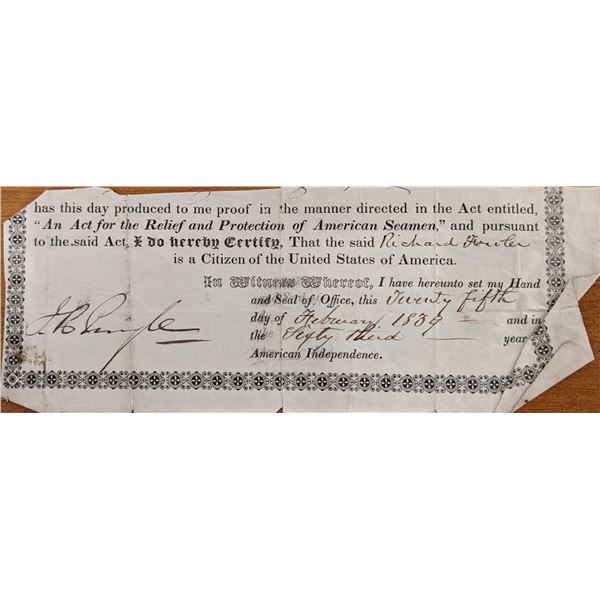 has this day produced to me proof in the manner directed in the Act entitled,
"An Act for the Relief and Protection of American Seamen," and pursuant
to the said Act, I do hereby Certify, That the said Richard Fowler
is a Citizen of the United States of America.
In Witness Whereof, I have hereunto set my Hand
and Seal of Office, this Twenty fifth
day of February 1839 and in
the Sixty third year
American Independence.